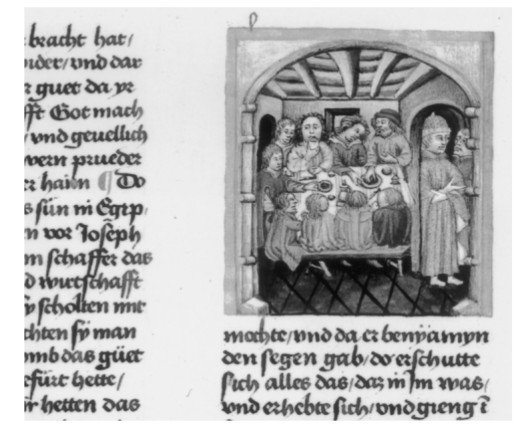 bracht hat/
vnd dar
guet da yr
Got mach
vnd geuellich
prueder
¶ Do
sün in Egip
vor Joseph
schaffer das
wirtschafft
scholten mit
sy man
vmb das güet
hette/
hetten das
mochte/vnd da er benyamyn
den segen gab/do erschutte
sich alles das/daz in Im was/
vnd erhebte sich/vnd gieng ī